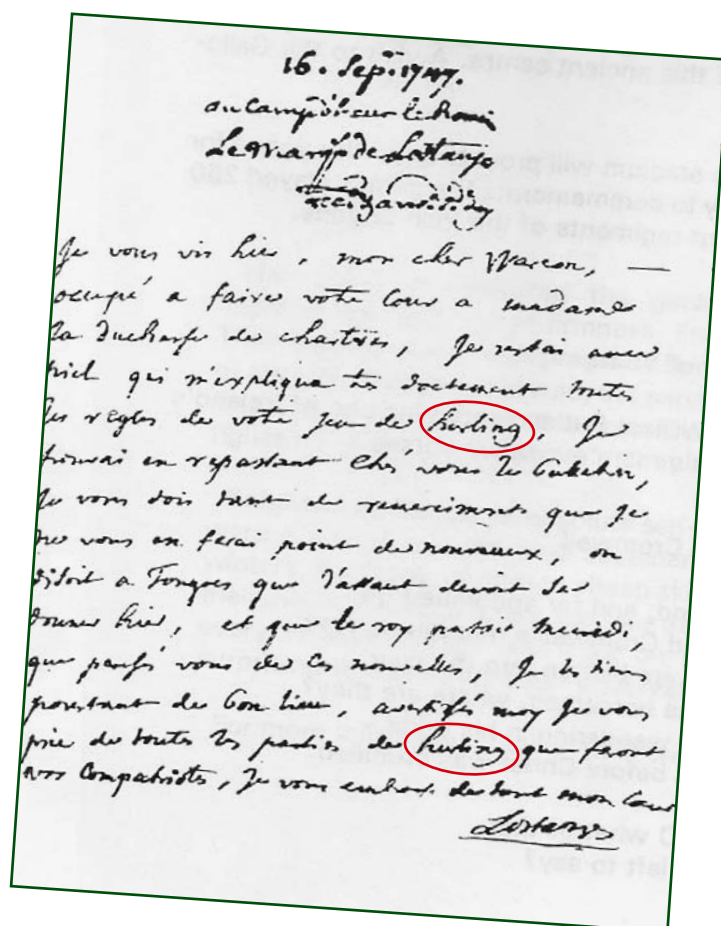 16. Sep. 1747.
au Camp sur le
Le Marq. de Lostange

Je vous vis hier, mon cher Warcon, —
occupé a faire vote Cour a madame
la duchesse de chartres, Je restai avec
qui m'expliqua tes doctement toutes
les regles de vote Jeu de hurling, Je
trouvai en repassant Ches vous le
Je vous dois tant de remerciments que Je
ne vous en ferai point de nouveaux, on
disoit a Tongres que l'assaut devoit se
donner hier, et que le roy partoit mercredi,
que pensés vous de Ces nouvelles, Je les tiens
pourtant de bon lieu, avertissés moy Je vous
prie de toutes les parties de hurling que feront
vos Compatriotes, Je vous embrasse de tout mon Cœur
Lostange